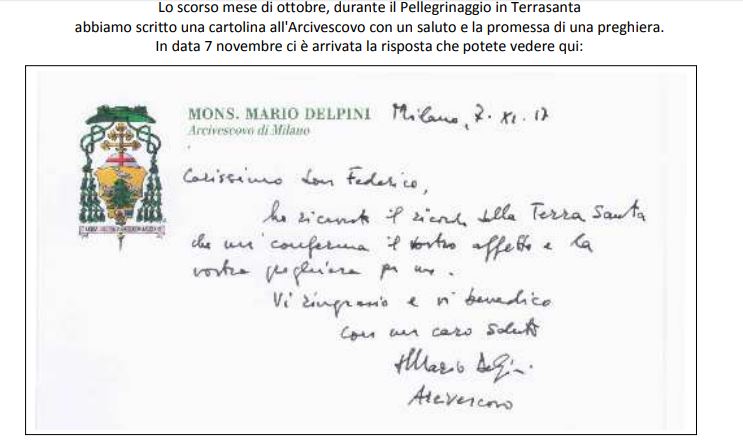 Lo scorso mese di ottobre, durante il Pellegrinaggio in Terrasanta
abbiamo scritto una cartolina all'Arcivescovo con un saluto e la promessa di una preghiera.
In data 7 novembre ci è arrivata la risposta che potete vedere qui:
MONS. MARIO DELPINI
Arcivescovo di Milano
Milano, 7. XI. 17
Carissimo don Federico,
ho ricevuto il ricordo della Terra Santa
che mi conferma il vostro affetto e la
vostra preghiera per me.
Vi ringrazio e vi benedico
con un caro saluto
+Mario Delpini
Arcivescovo